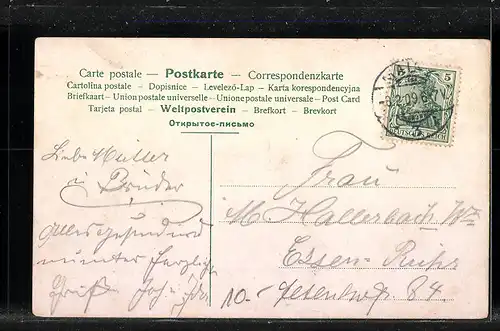 Carte postale — Postkarte — Correspondenzkarte
Cartolina postale – Dopisnice – Levelező-Lap – Karta korespondencyjna
Briefkaart – Union postale universelle – Unione postale universale – Post Card
Tarjeta postal – Weltpostverein – Brefkort – Brevkort
Открытое-письмо
5
DEUTSCHES REICH
Liebe Mutter
u Brüder
alles gesund und
munter herzliche
Grüße Joh u
Frau
M. Hallerbach Ww
Essen-Ruhr
10.- 84.